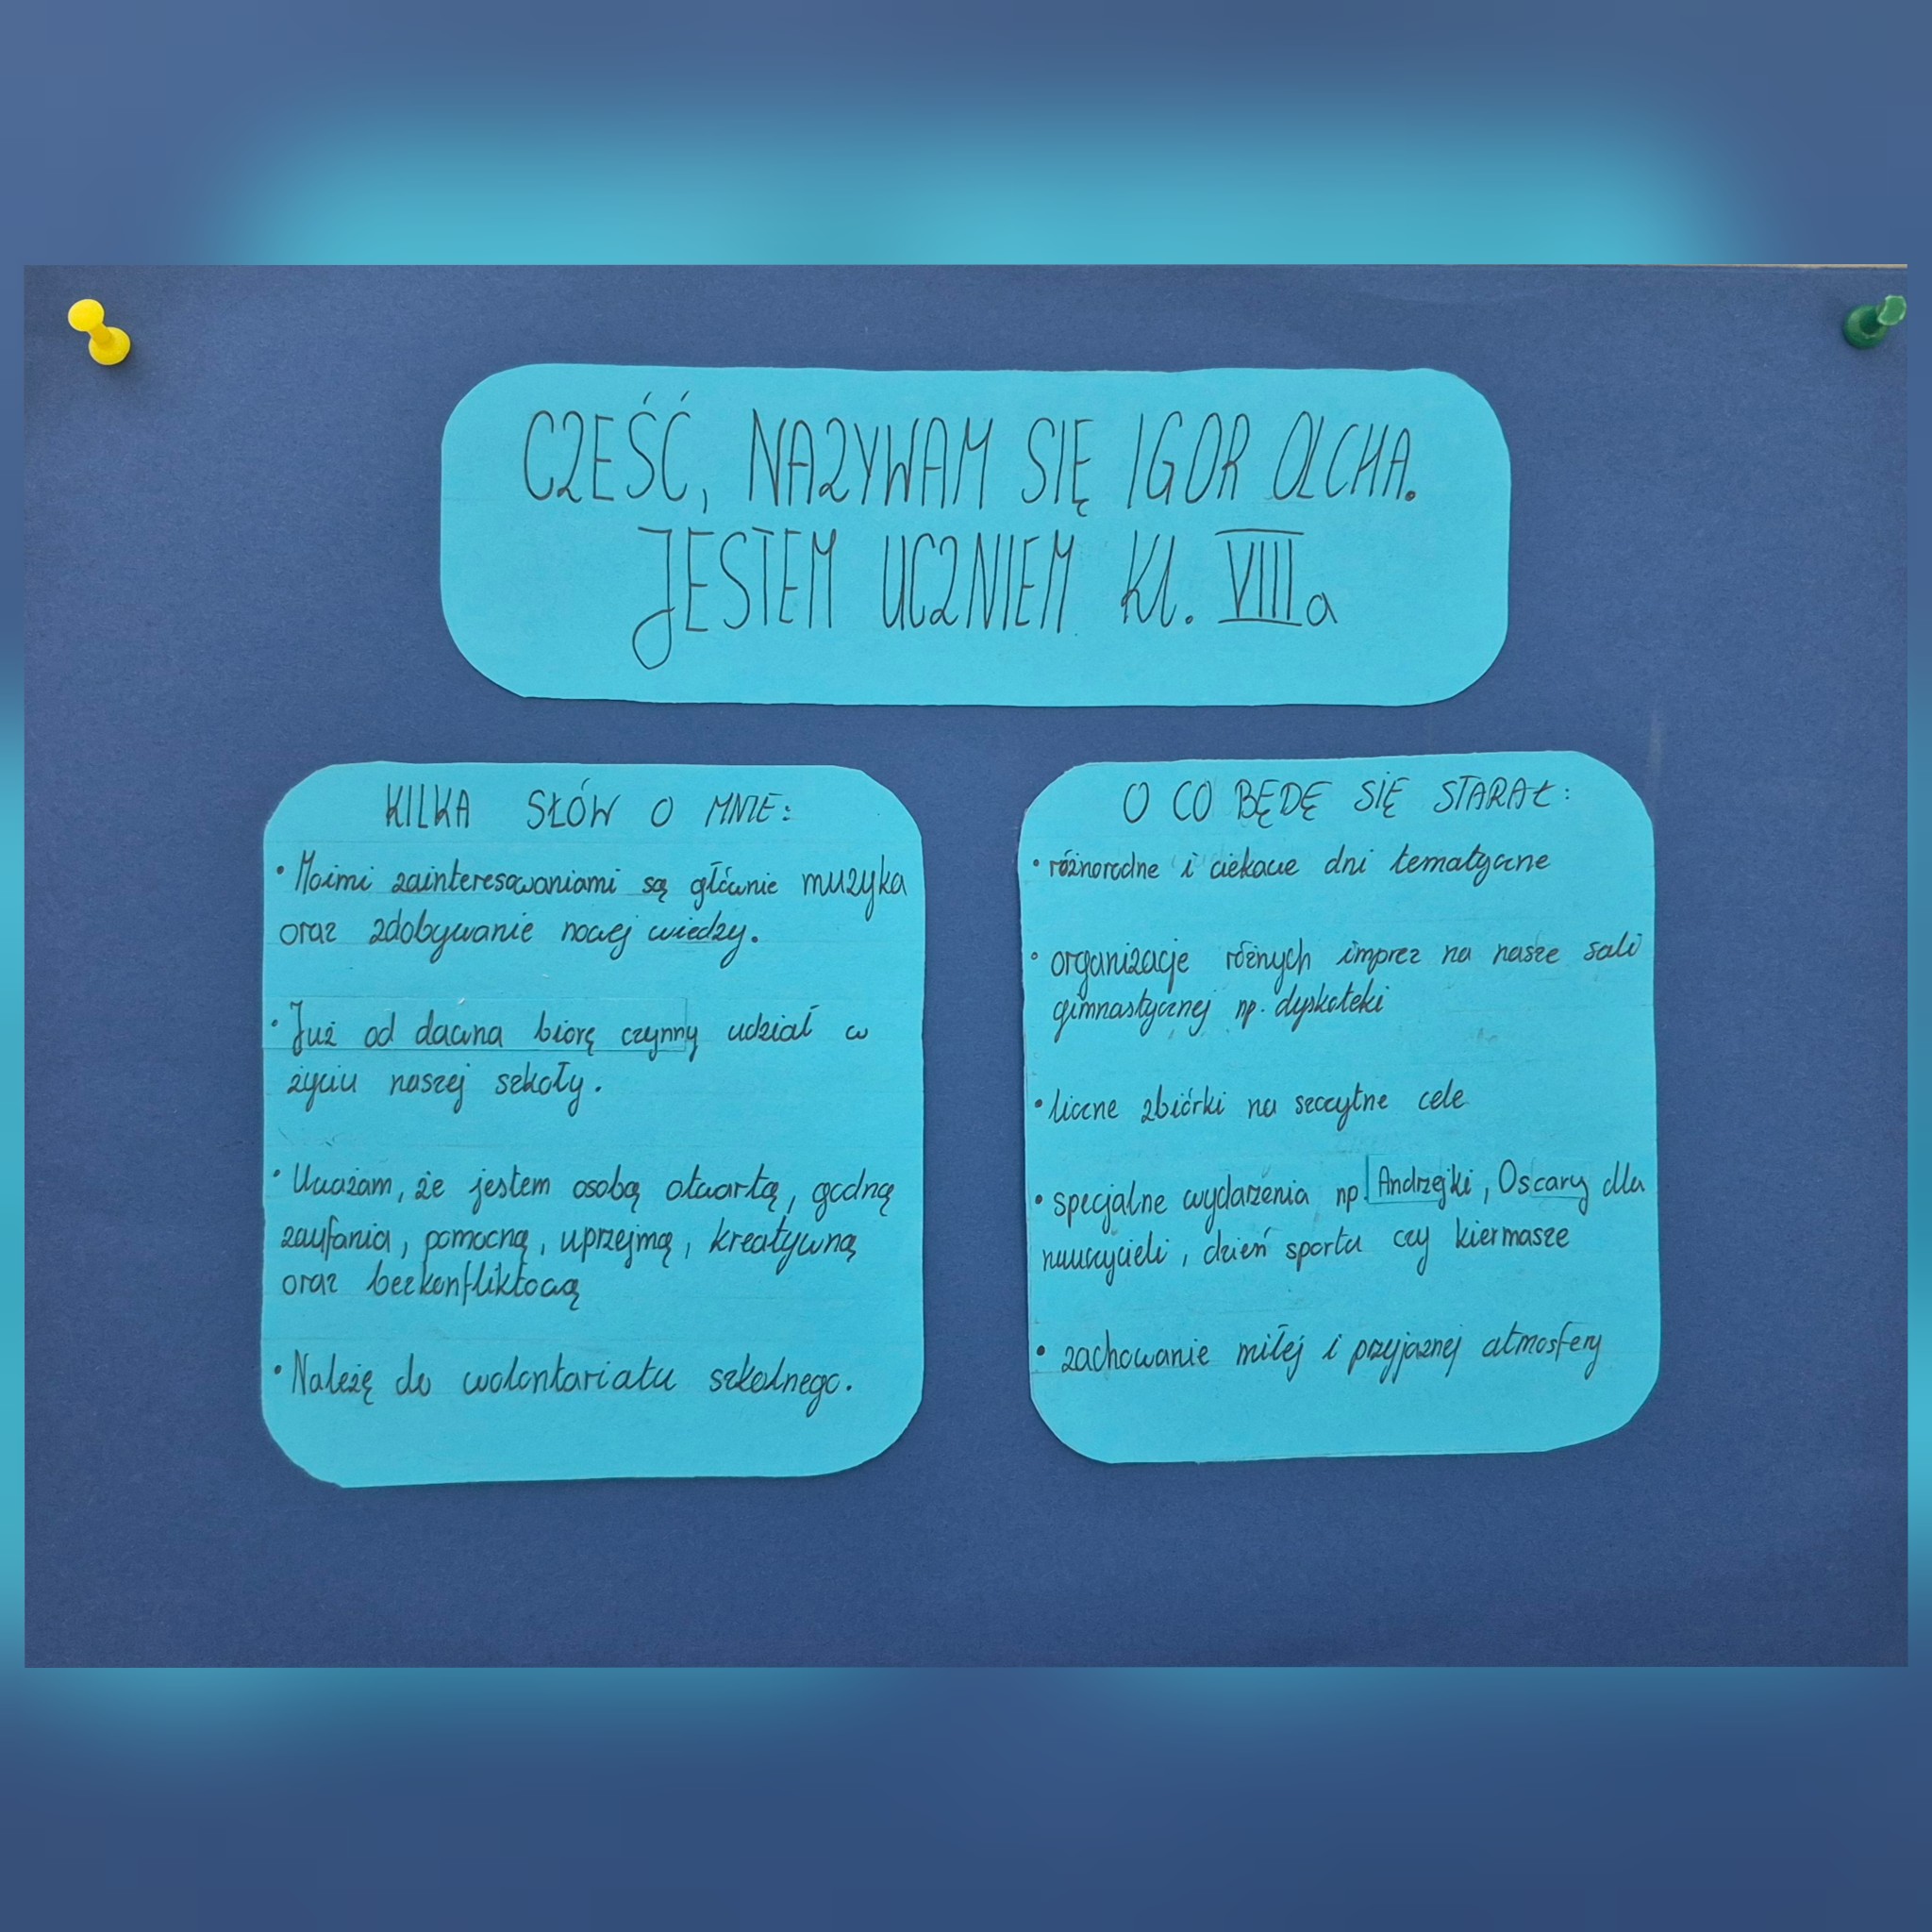 CZEŚĆ, NAZYWAM SIĘ IGOR OLCHA.
JESTEM UCZNIEM KL. VIII a
KILKA SŁÓW O MNIE:
• Moimi zainteresowaniami są głównie muzyka
oraz zdobywanie nowej wiedzy.
• Już od dawna biorę czynny udział w
życiu naszej szkoły.
• Uważam, że jestem osobą otwartą, godną
zaufania, pomocną, uprzejmą, kreatywną
oraz bezkonfliktową
• Należę do wolontariatu szkolnego.
O CO BĘDĘ SIĘ STARAŁ:
• różnorodne i ciekawe dni tematyczne
• organizacje różnych imprez na nasze sali
gimnastycznej np. dyskoteki
• liczne zbiórki na szczytne cele
• specjalne wydarzenia np. Andrzejki, Oscary dla
nauczycieli, dzień sportu czy kiermasze
• zachowanie miłej i przyjaznej atmosfery